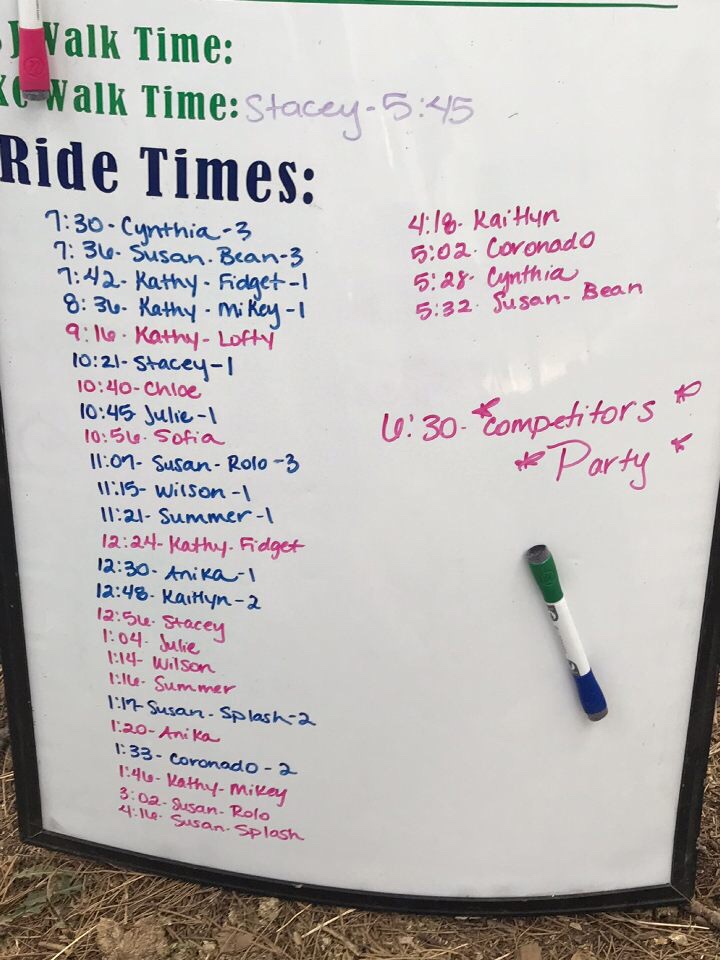 Walk Time:
Walk Time: Stacey - 5:45
Ride Times:
7:30- Cynthia -3
7:36- Susan- Bean-3
7:42- Kathy - Fidget -1
8:36- Kathy - Mikey -1
9:16- Kathy- Lofty
10:21- Stacey-1
10:40- Chloe
10:45 Julie -1
10:56- Sofia
11:07- Susan- Rolo -3
11:15- Wilson -1
11:21- Summer -1
12:24- Kathy- Fidget
12:30- Anika-1
12:48- Kaitlyn -2
12:56- Stacey
1:04- Julie
1:14- Wilson
1:16- Summer
1:17- Susan- Splash-2
1:20- Anika
1:33- Coronado - 2
1:46- Kathy- Mikey
3:02- Susan- Rolo
4:16- Susan- Splash
4:18- Kaitlyn
5:02- Coronado
5:28- Cynthia
5:32- Susan- Bean
6:30- *Competitors *
* Party *